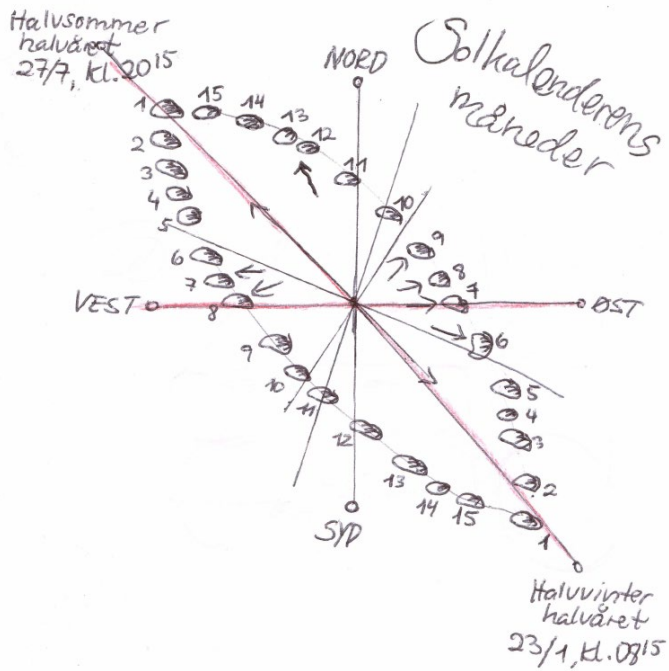 Halvsommer
halvåret
27/7, kl. 20¹⁵
NORD
Solkalenderens
måneder
1
15
14
13
12
11
10
9
8
7
6
5
4
3
2
1
2
3
4
5
6
7
8
9
10
11
12
13
14
15
VEST
ØST
SYD
1
Halvvinter
halvåret
23/1, kl. 08¹⁵